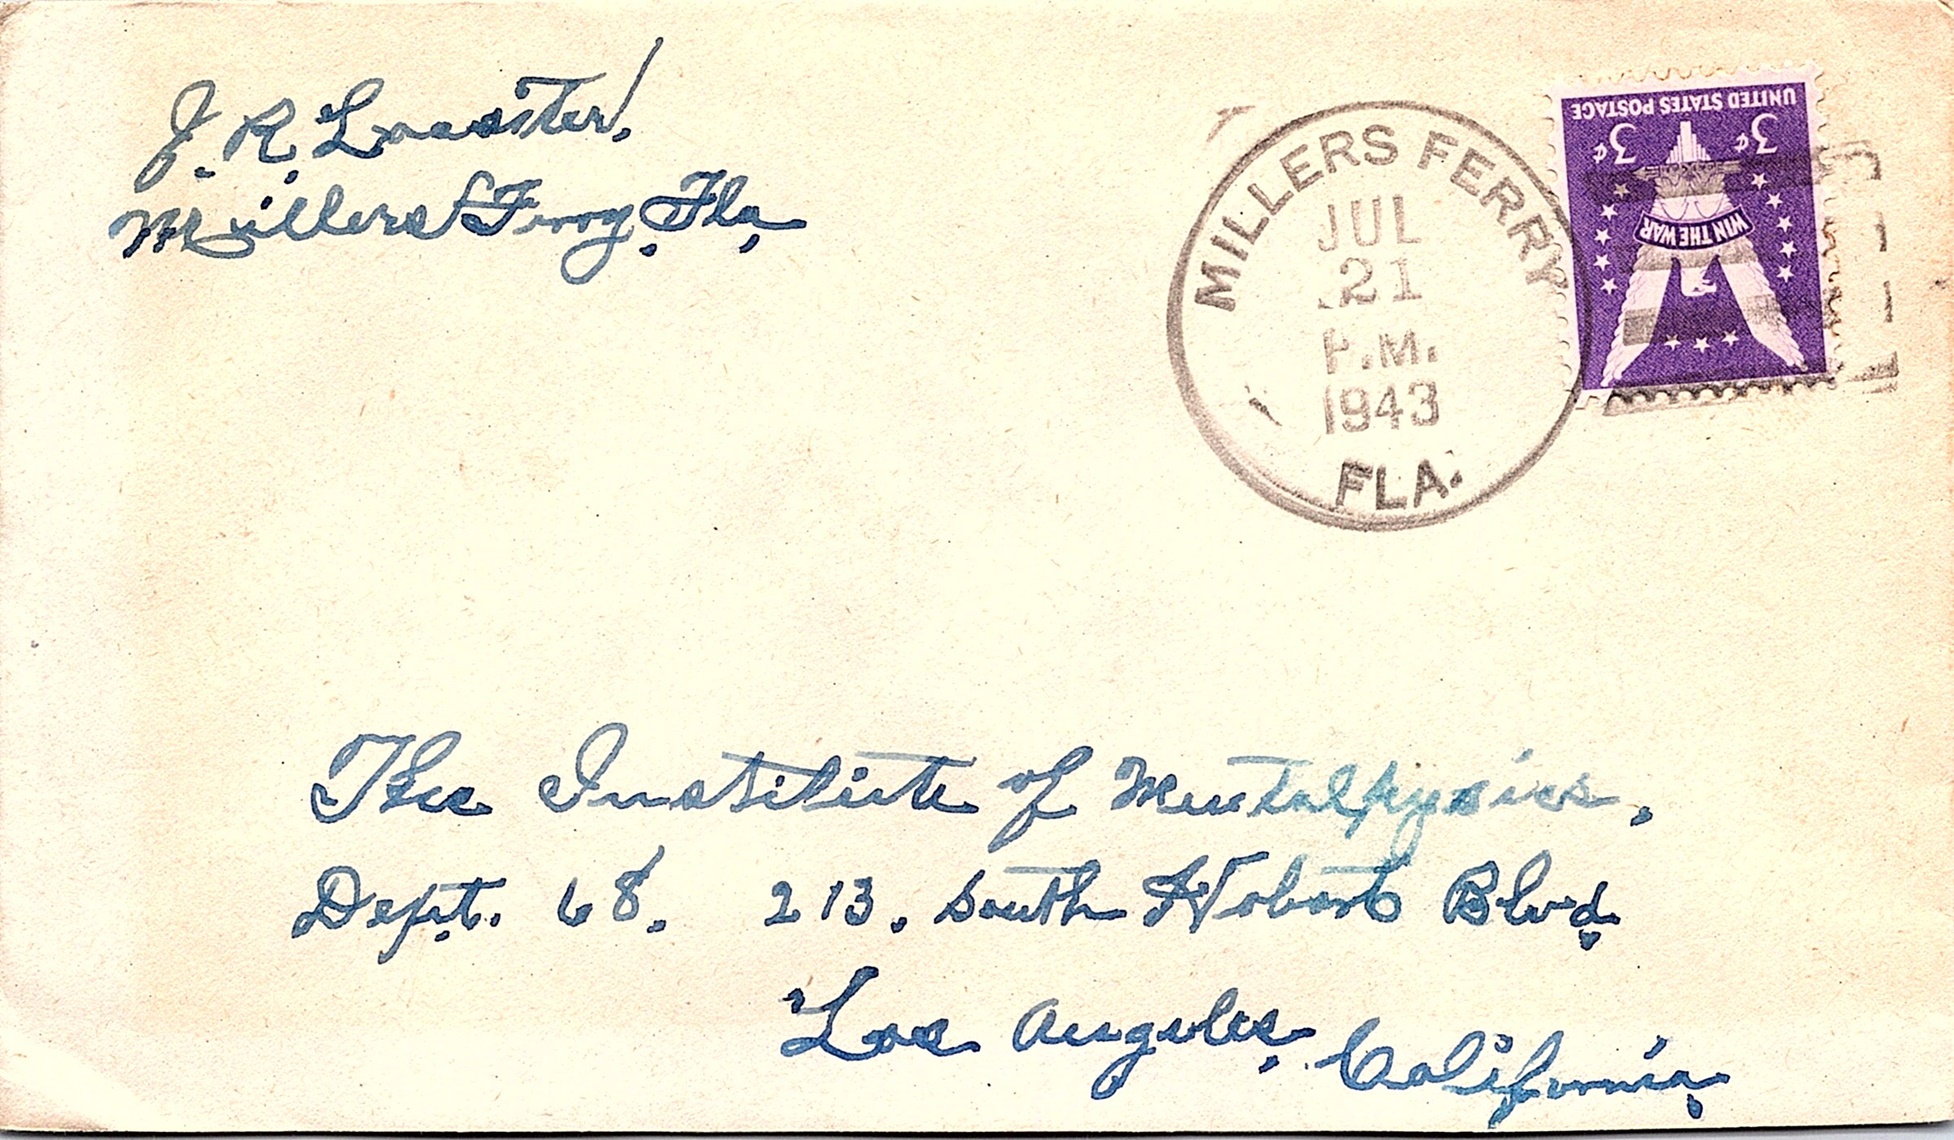 J. R. Lassiter,
Millers Ferry, Fla,
MILLERS FERRY
JUL
21
P.M.
1943
FLA.
UNITED STATES POSTAGE
3¢ 3¢
WIN THE WAR
The Institute of Mentalphysics,
Dept. 68. 213. South Hobart Blvd.
Los Angeles, California,